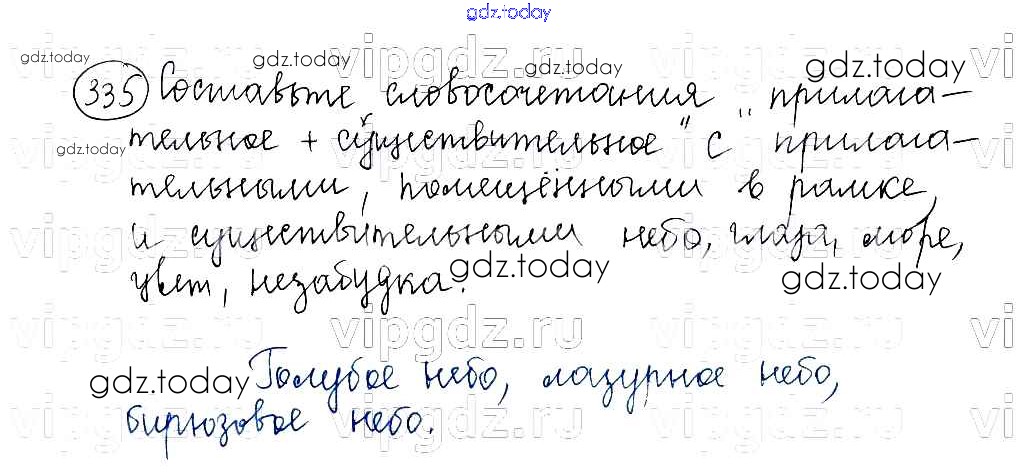 gdz.today
vipgdz.ru
gdz.today gdz.today gdz.today
335 Составьте словосочетания "прилага-
gdz.today тельное + существительное" с прилага-
тельными, помещёнными в рамке,
и существительными небо, глаза, море,
цвет, незабудка.
gdz.today gdz.today
vipgdz.ru
gdz.today Голубое небо, лазурное небо,
бирюзовое небо.